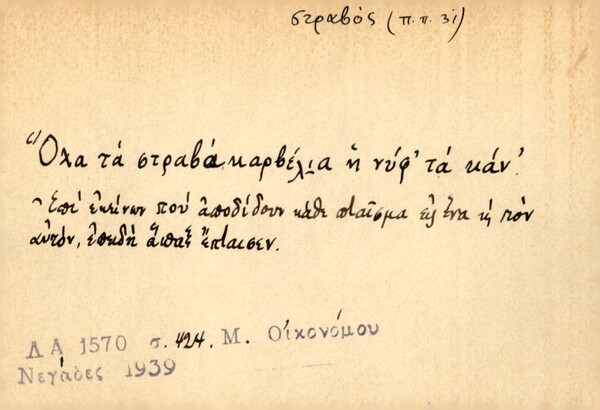 στραβός (π.π. 31)
"Όλα τά στραβά καρβέλια ἡ νύφ' τά κάν'.
Ἐπί ἐκείνων πού ἀποδίδουν κάθε πταῖσμα εἰς ἕνα κ τὸν
αὐτόν, ἐπειδή ἅπαξ ἔπταισεν.
Λ Α 1570 σ. 424. Μ. Οἰκονόμου
Νεγάδες 1939